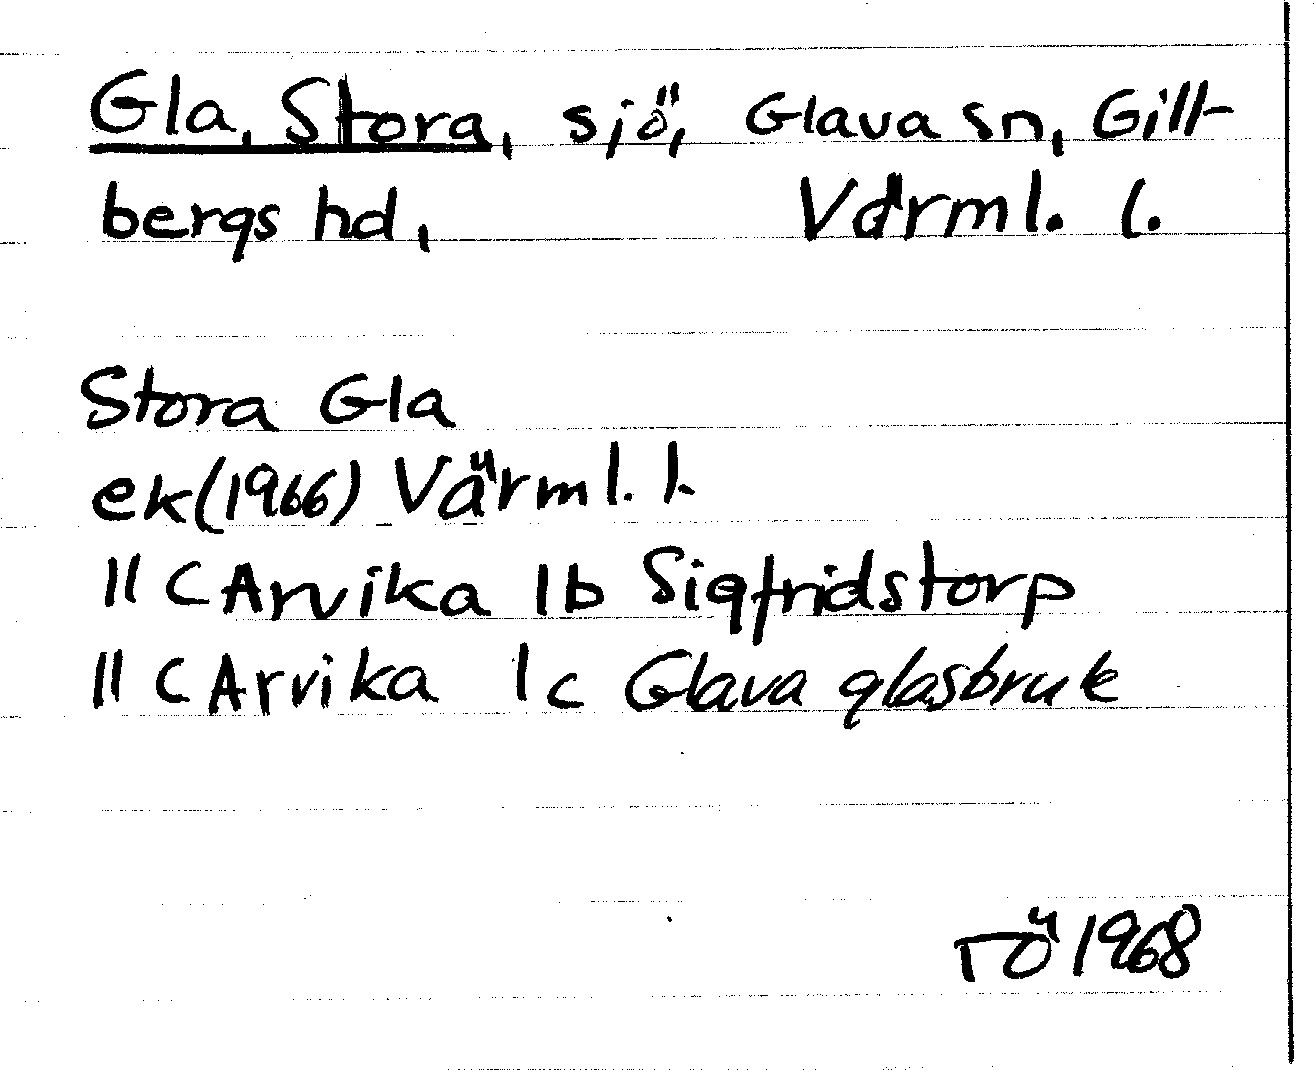 Gla, Stora, sjö, Glava sn, Gill-
bergs hd, Värml. l.
Stora Gla
ek (1966) Värml. l.
11 C Arvika 1b Sigfridstorp
11 C Arvika 1c Glava glasbruk
rö 1968